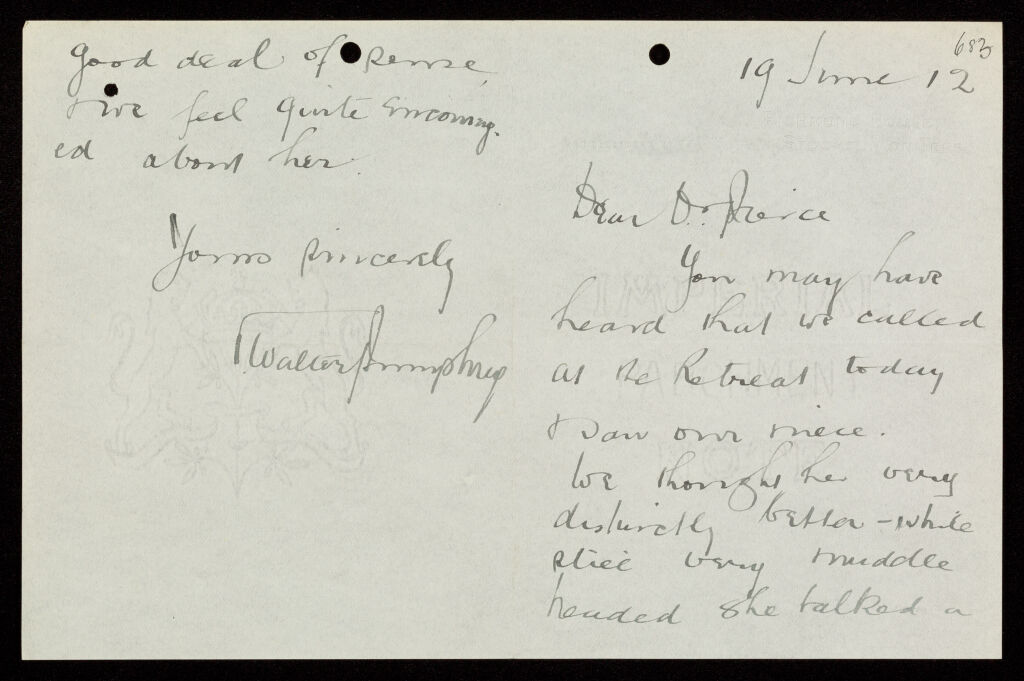 683
19 June 12
Dear Dr. Pierce
You may have
heard that we called
at the Retreat today
& saw our niece.
We thought her very
distinctly better - while
still very muddle
headed she talked a
good deal of sense,
& we feel quite encourag-
ed about her.
Yours sincerely
T. Walter Humphrey
IMPERIAL
PARCHMENT